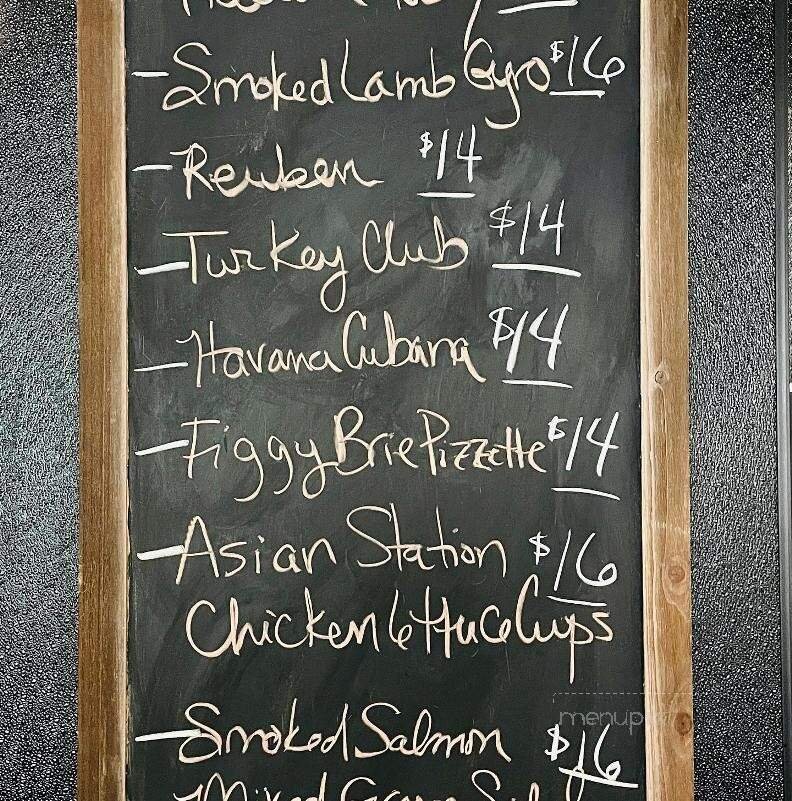 - Smoked Lamb Gyro $16
- Reuben $14
- Turkey Club $14
- Havana Cubana $14
- Figgy Brie Pizzette $14
- Asian Station $16
Chicken Lettuce Cups
- Smoked Salmon $16
Mixed